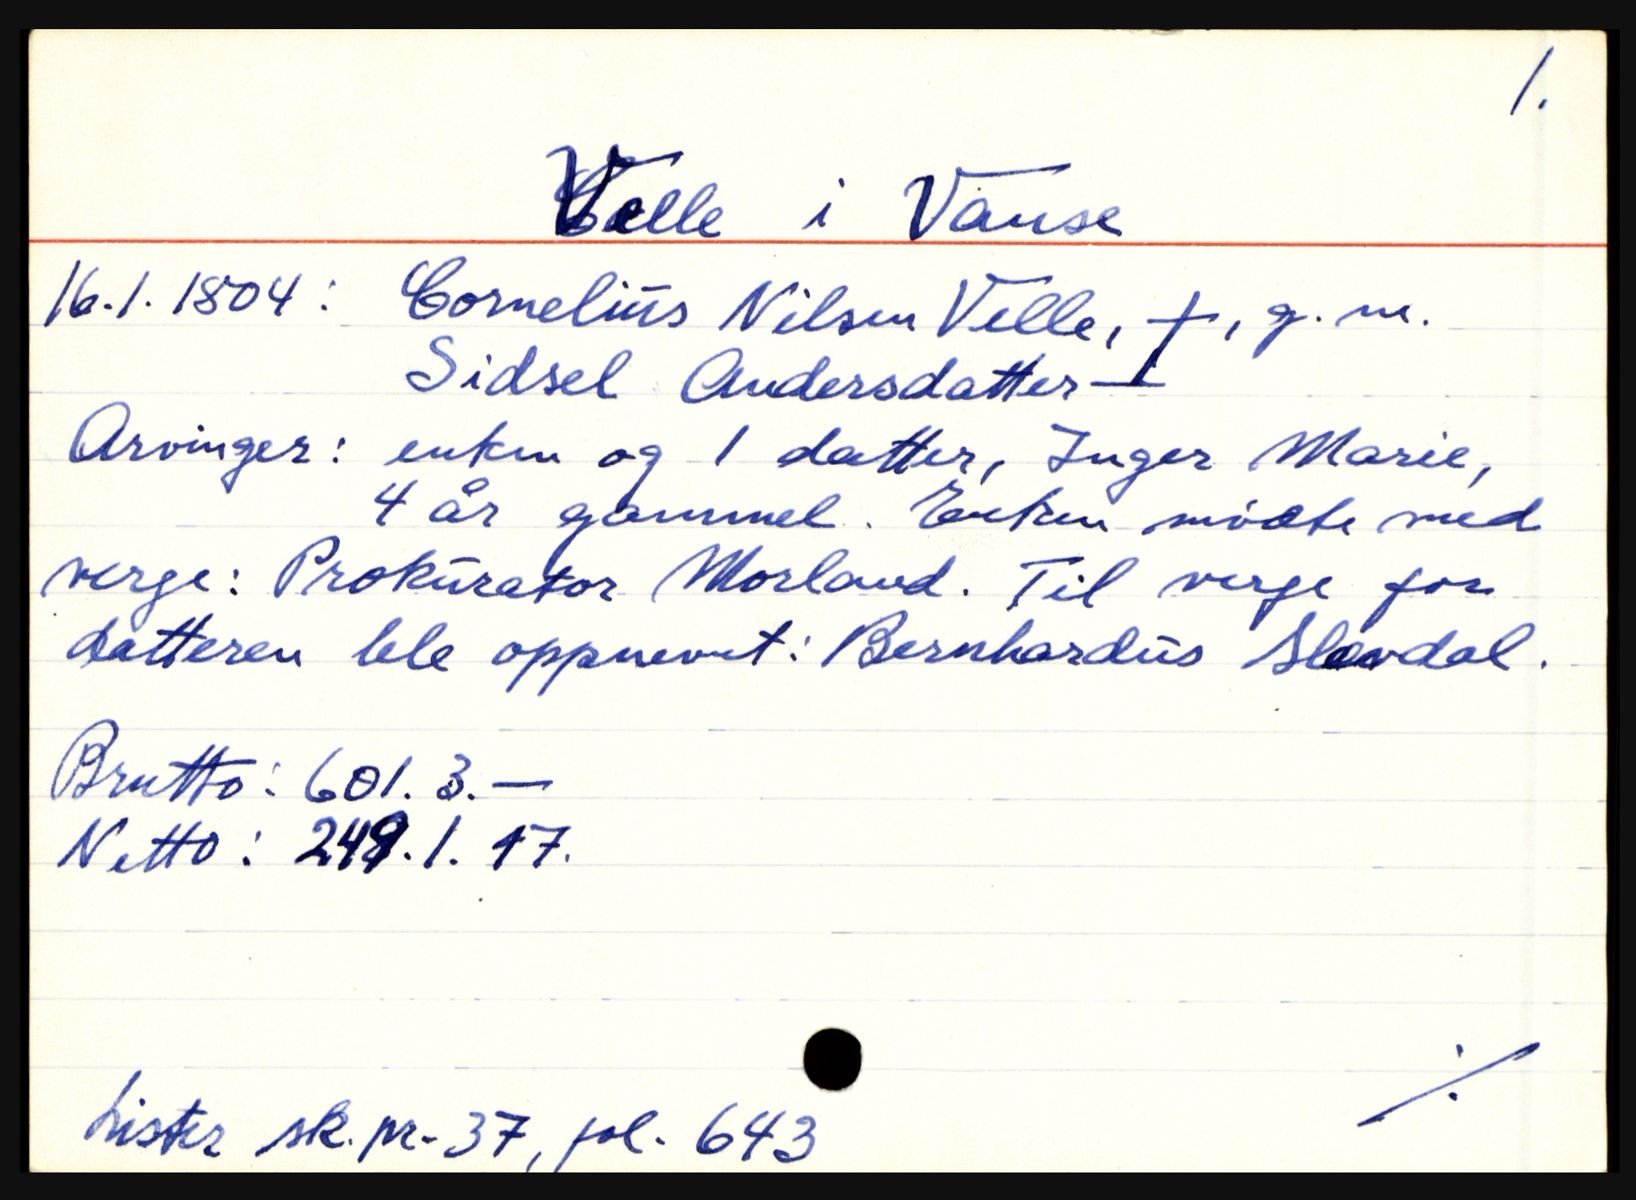 1.
Velle i Vanse
16.1.1804: Cornelius Nilsen Velle, †, g.m.
Sidsel Andersdatter —
Arvinger: enken og 1 datter, Inger Marie,
4 år gammel. Enken møtte med
verge: Prokurator Morland. Til verge for
datteren ble oppnevnt: Bernhardus Slevdal.
Brutto: 601.3.—
Netto: 249.1.17.
./.
Lister sk.pr. 37, fol. 643